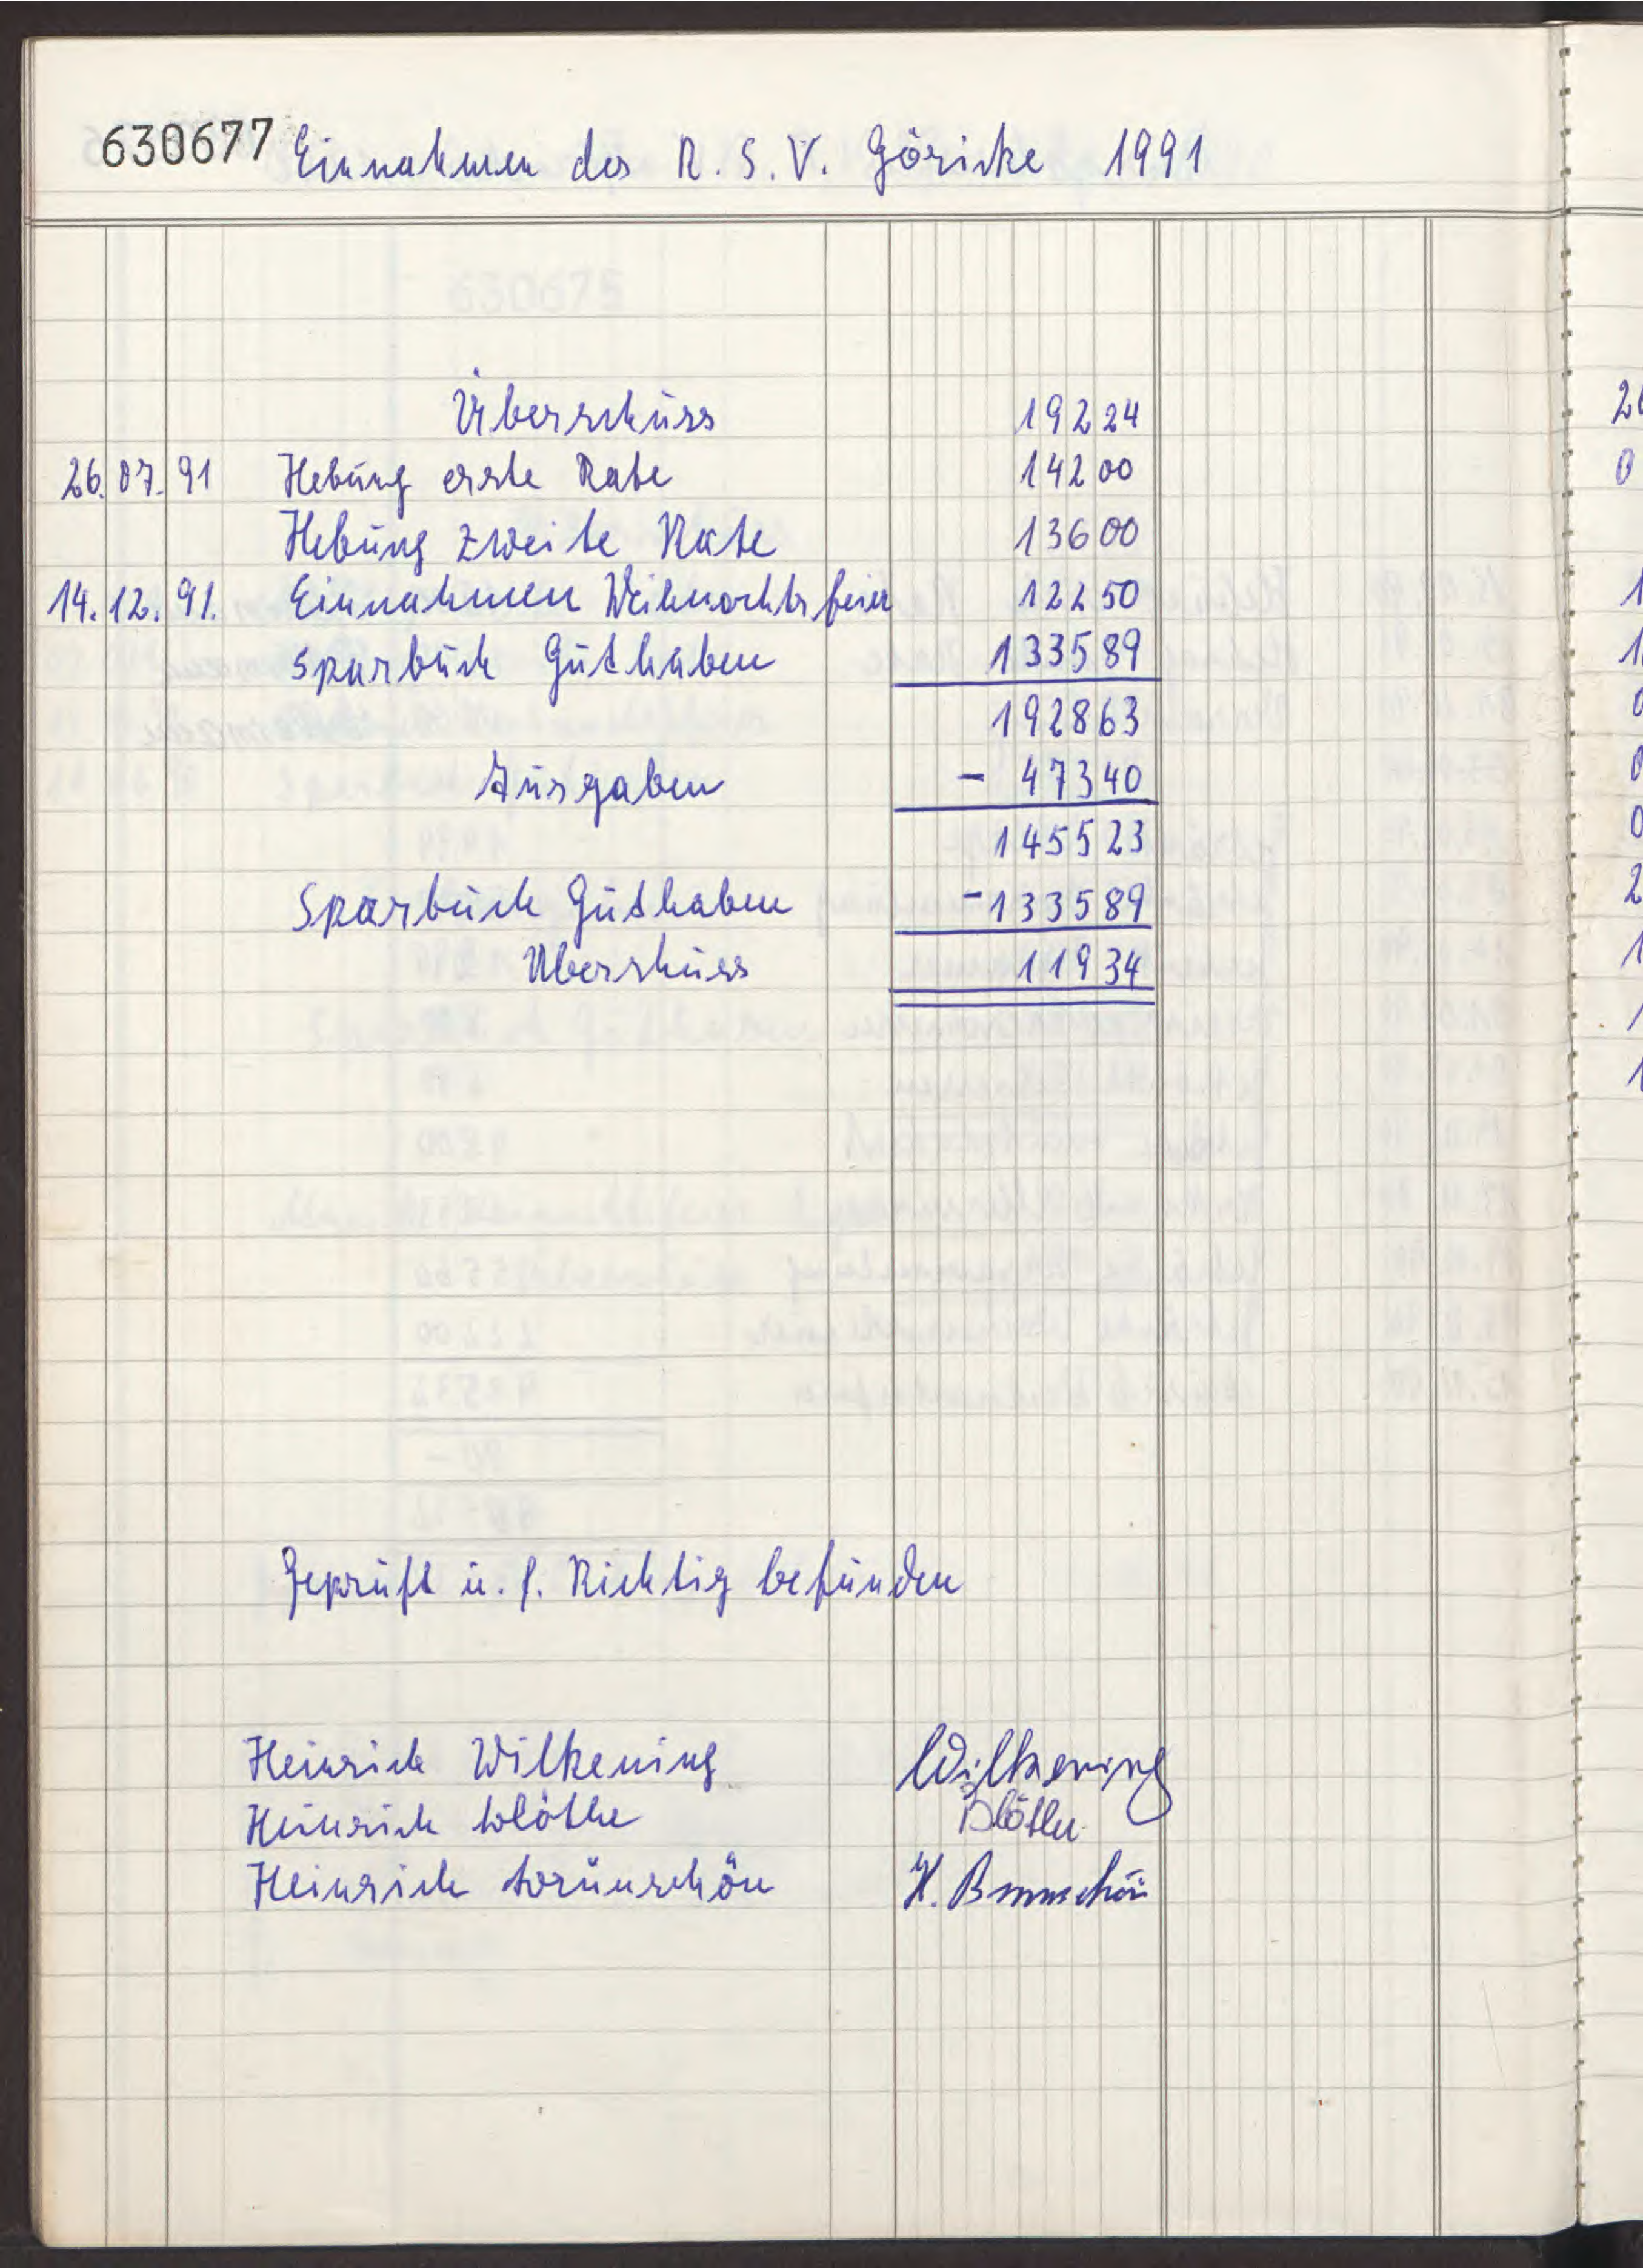 630677 Einnahmen des R. S. V. Göricke 1991
Überschuss 192 24
26. 07. 91 Hebung erste Rate 142 00
Hebung zweite Rate 136 00
14. 12. 91. Einnahmen Weihnachtsfeier 122 50
Sparbuch Guthaben 1335 89
1928 63
Ausgaben - 473 40
1455 23
Sparbuch Guthaben - 1335 89
Überschuss 119 34
Geprüft u. f. Richtig befunden
Heinrich Wilkening Wilkening
Heinrich Blöthe Blöthe
Heinrich Brünschön H. Brunschön